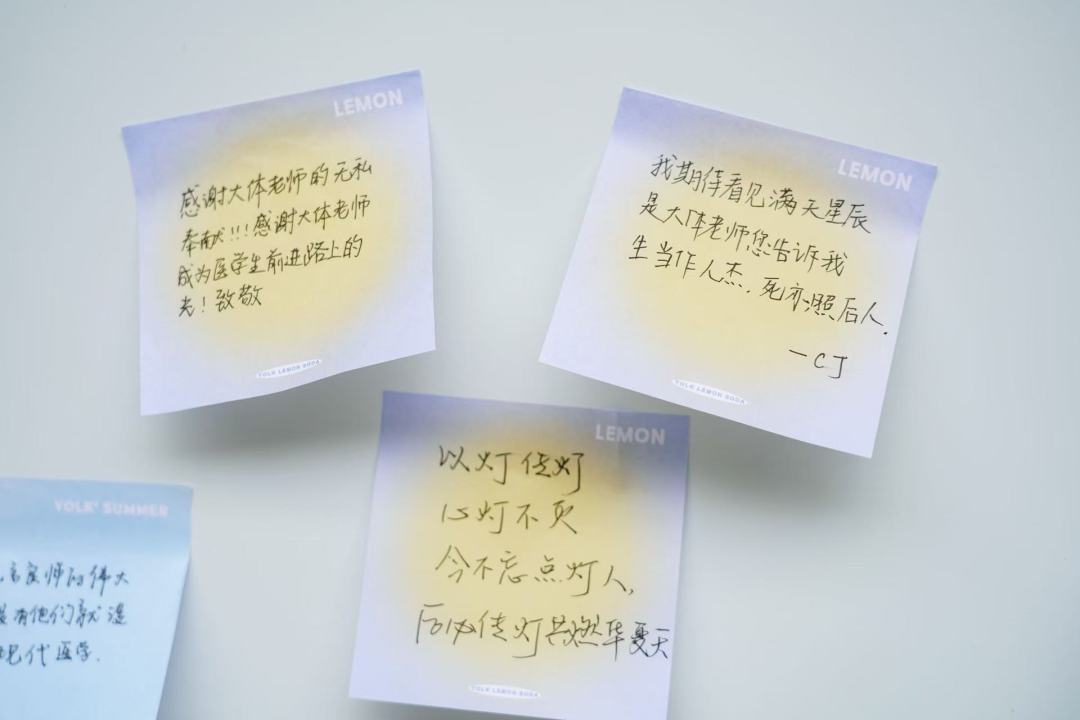 LEMON
感谢大体老师的无私
奉献!!!感谢大体老师
成为医学生前进路上的
光!致敬
YOLK LEMON SODA
LEMON
我期待看见满天星辰
是大体老师您告诉我
生当作人杰,死亦照后人.
—CJ
YOLK LEMON SODA
LEMON
以灯传灯
心灯不灭
今不忘点灯人,
后必传灯共燃华夏天
YOLK LEMON SODA
YOLK' SUMMER
师的伟大
有他们就没
现代医学.